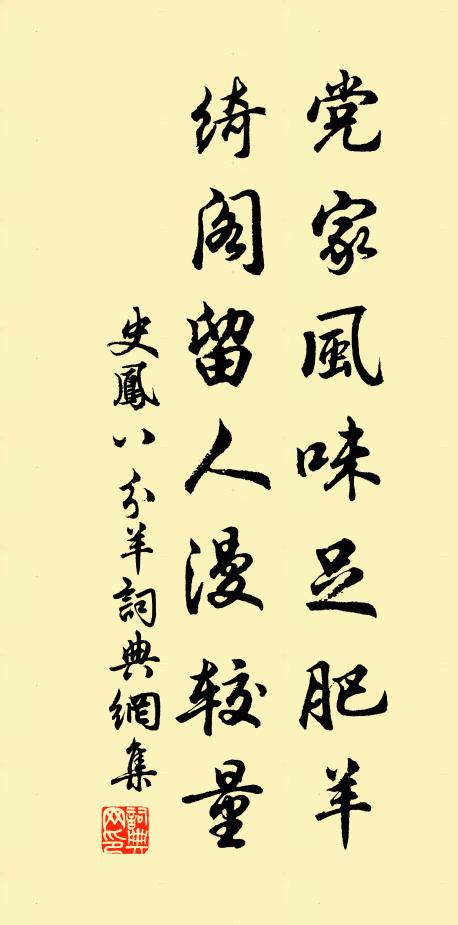 党家風味足肥羊
綺阁留人漫較量
史鳳八分羊詞典網集
詞典网印